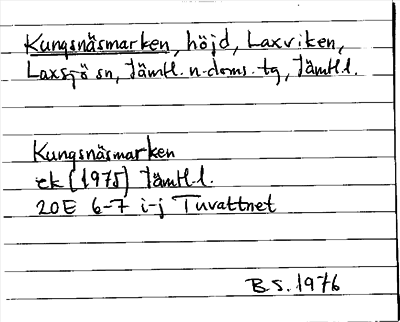 Kungsnäsmarken, höjd, Laxviken,
Laxsjö sn, Jämtl. n. doms. tg, Jämtl.l.
Kungsnäsmarken
ek (1975) Jämtl.l.
20E 6-7 i-j Tuvattnet
B S. 1976